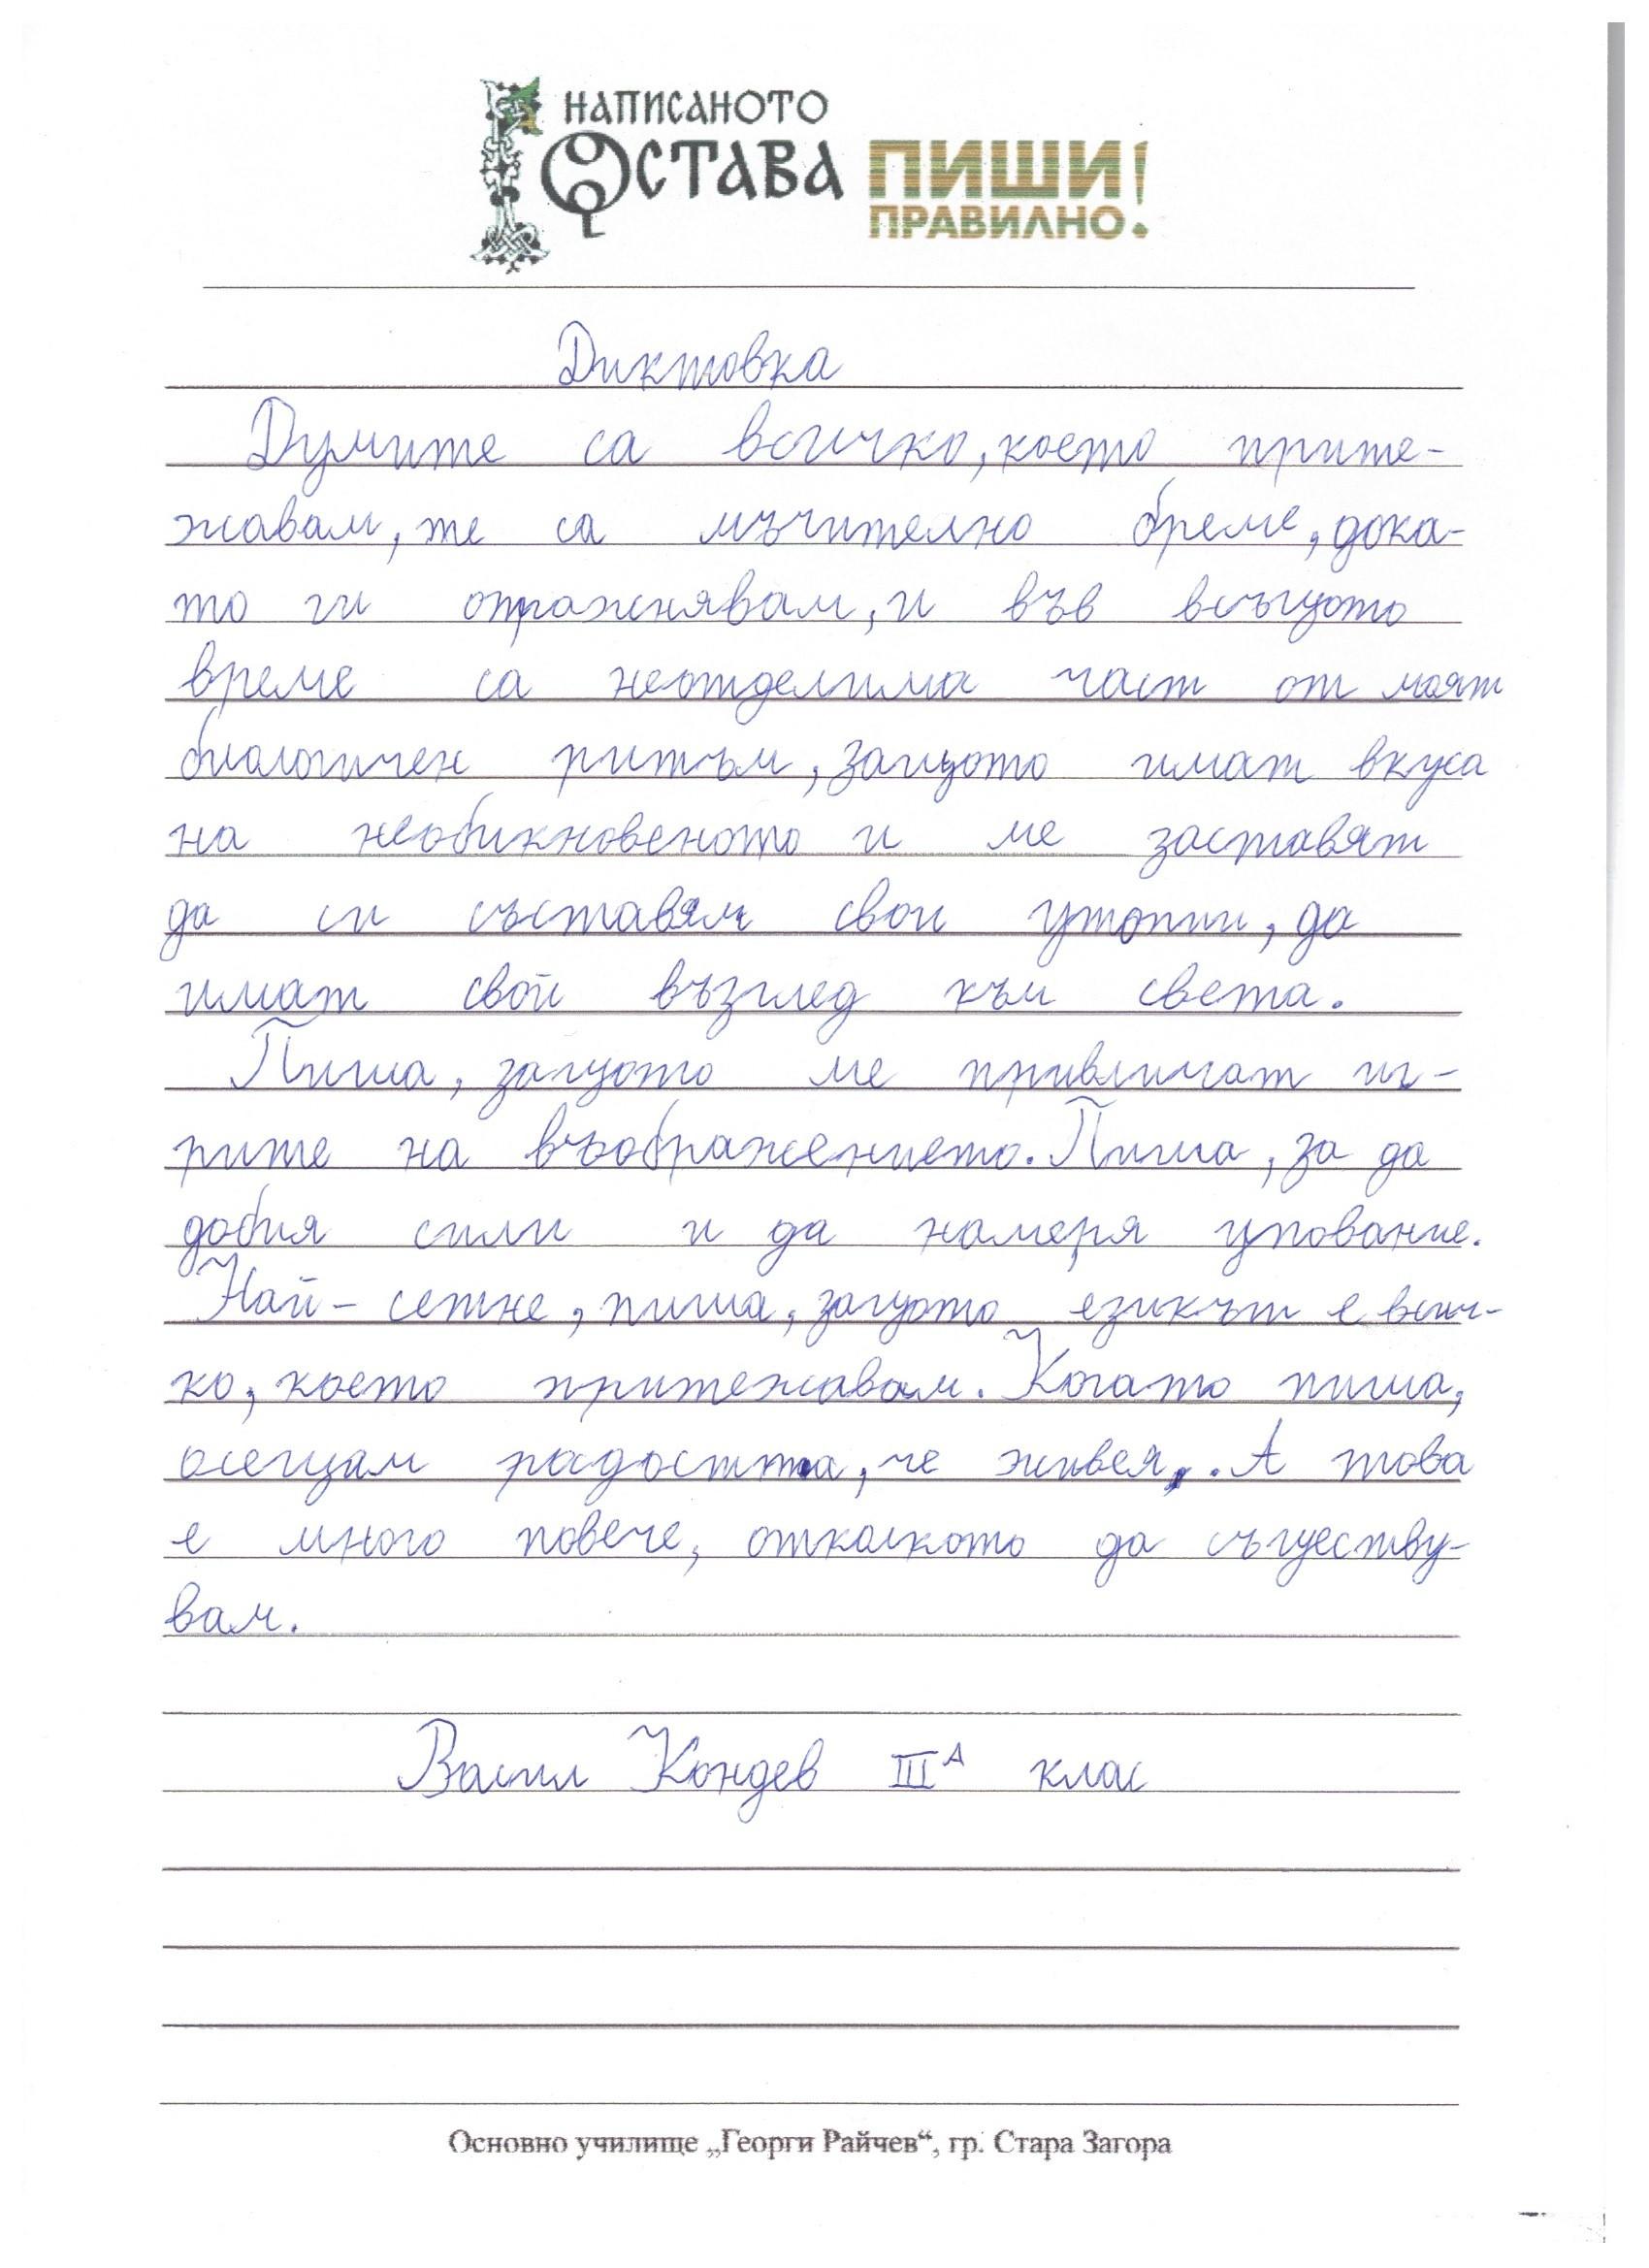 НАПИСАНОТО
ОСТАВА ПИШИ!
ПРАВИЛНО!
Диктовка
Думите са всичко, което прите-
жавам, те са мъчително бреме, дока-
то ги отражнявам, и във всъщото
време са неотделима част от моят
биологичен ритъм, защото имат вкуса
на необикновеното и ме заставят
да си съставям свои утопии, да
имат свой възглед към света.
Пиша, защото ме привличат иг-
рите на въображението. Пиша, за да
добия сили и да намеря упование.
Най-сетне, пиша, защото езикът е всич-
ко, което притежавам. Когато пиша,
осещам радостта, че живея. А това
е много повече, отколкото да съществу-
вам.
Васил Кондев III А клас
Основно училище „Георги Райчев“, гр. Стара Загора